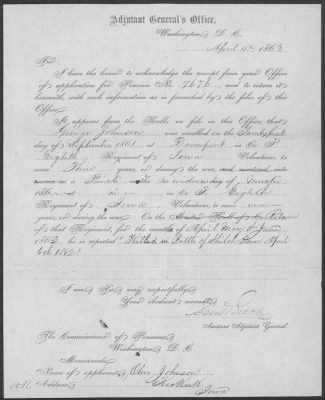 Adjutant General's Office,
Washington D. C.
April 4th 1863
Sir:
I have the honor to acknowledge the receipt from your Office
of application for Pension No. 7676 and to return it
herewith, with such information as is furnished by the files of this
Office.
It appears from the Rolls on file in this Office, that
George Johnson was enrolled on the
day of September 1861 at Davenport in Co. F
Eighth Regiment of Iowa Volunteers, to
serve Three years, or during the war, and mustered into
service as a Private
186 in Co. F, Eighth
Regiment of Iowa Volunteers, to serve
years, or during the war. On the Muster Roll of Return
of that Regiment, for the months of April May & June
1862, he is reported "Killed in battle of Shiloh Tenn. April
6th 1862"
I am Sir very respectfully,
Your obedient servant,
Assistant Adjutant General
The Commissioner of Pensions
Washington D. C.
Memoranda
Name of applicant, Johnson
Address
Iowa